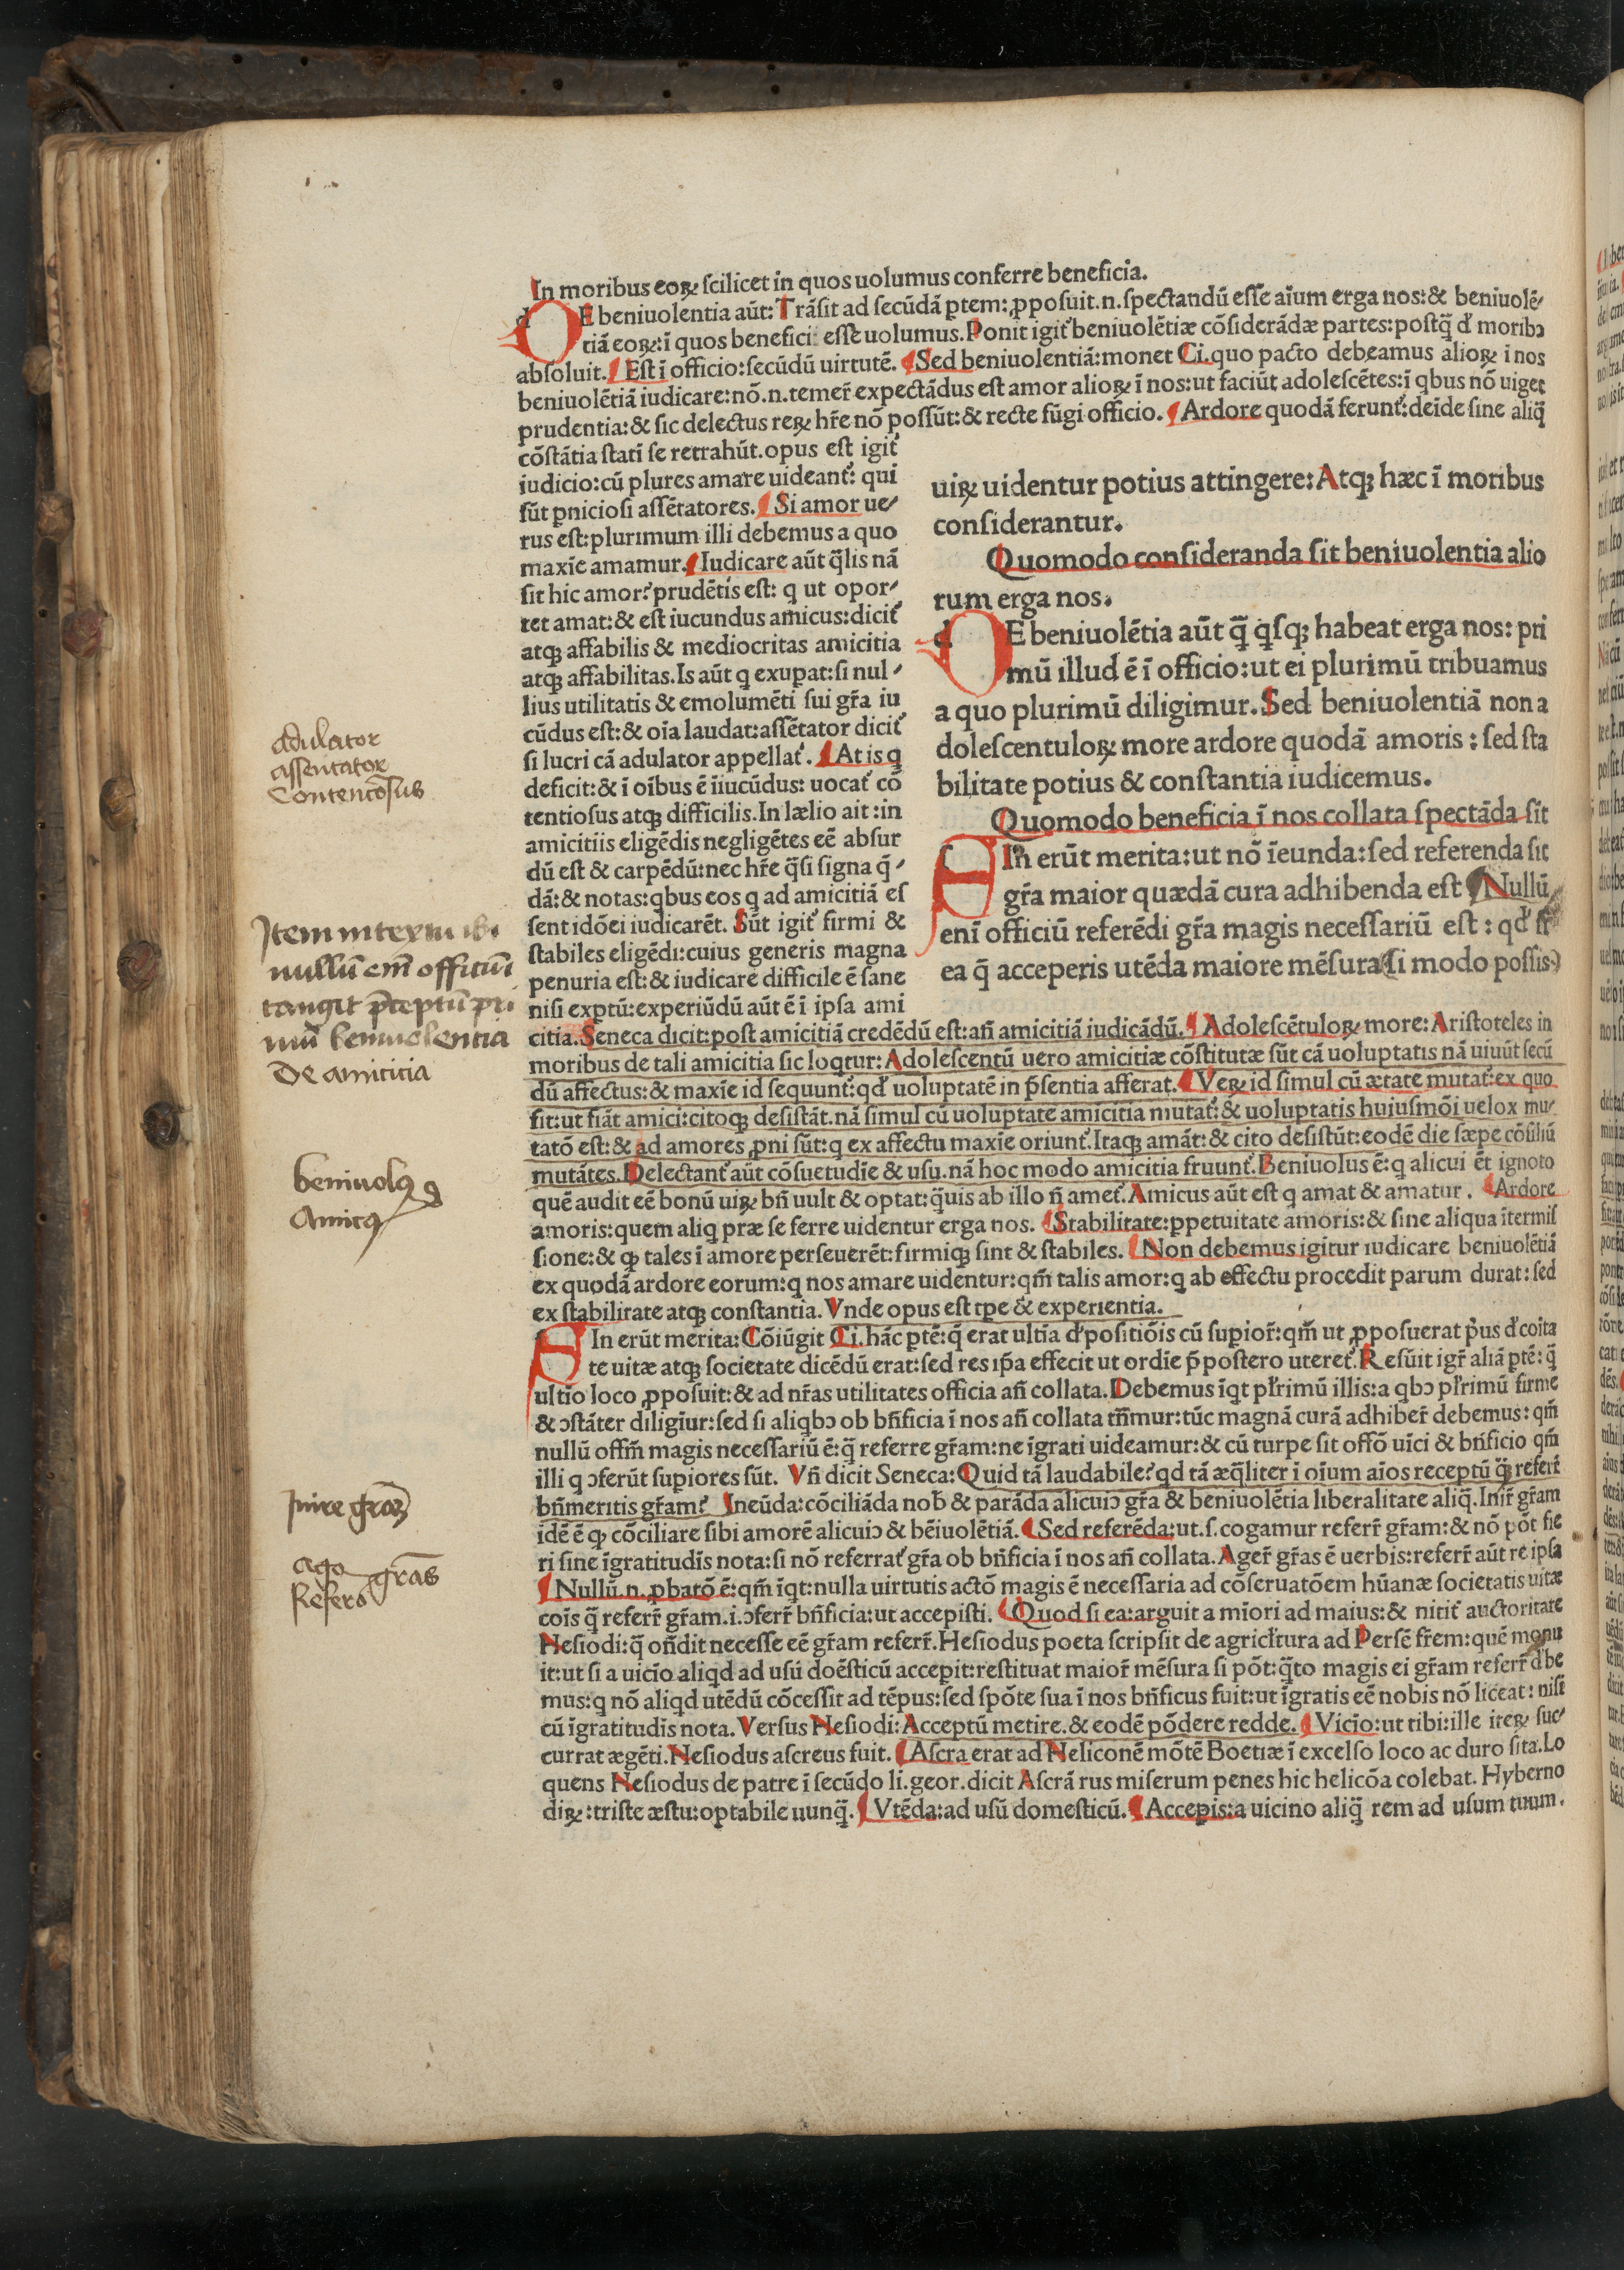 In moribus eoꝝ ſcilicet in quos uolumus conferre beneficia.
dE beniuolentia aūt: Trāſit ad ſecūdā ꝑtem: ꝓpoſuit.n.ſpectandū eſſe aīum erga nos:& beniuolē⸗
tiā eoꝝ:ī quos benefici eſſe uolumus.Ponit igit᷑ beniuolētiæ cōſiderādæ partes:poſtq̄ď moribꝰ
abſoluit. ¶ Eſt ī officio:ſecūdū uirtutē. ¶ Sed beniuolentiā:monet Ci.quo pacto debeamus alioꝝ ī nos
beniuolētiā iudicare:nō.n.temer̄ expectādus eſt amor alioꝝ ī nos:ut faciūt adoleſcētes:ī qbus nō uiget
prudentia:& ſic delectus reꝝ hr̄e nō poſſūt:& recte fūgi officio. ¶ Ardore quodā ferunt᷑:deīde ſine aliq̄
cōſtātia ſtatī ſe retrahūt.opus eſt igit᷑
iudicio:cū plures amare uideant᷑: qui
ſūt ꝑnicioſi aſſētatores. ¶ Si amor ue⸗
rus eſt:plurimum illi debemus a quo
maxīe amamur. ¶ Iudicare aūt q̄lis nā
ſit hic amor?prudētis eſt: q ut opor⸗
tet amat:& eſt iucundus amicus:dicit᷑
atqꝫ affabilis & mediocritas amicitia
atqꝫ affabilitas.Is aūt q exuꝑat:ſi nul⸗
lius utilitatis & emolumēti ſui gr̄a iu
cūdus eſt:& oīa laudat:aſſētator dicit᷑
ſi lucri cā adulator appellat᷑. ¶ At is q
deficit:& ī oībus ē īiucūdus: uocat᷑ cō
tentioſus atqꝫ difficilis.In lælio ait :in
amicitiis eligēdis negligētes eē abſur
dū eſt & carpēdū:nec hr̄e q̄ſi ſigna q̄⸗
dā:& notas:qbus eos q ad amicitiā eſ
ſent idōei iudicarēt. Sūt igit᷑ firmi &
ſtabiles eligēdi:cuius generis magna
penuria eſt:& iudicare difficile ē ſane
niſi exptū:experiūdū aūt ē ī ipſa ami
uiꝝ uidentur potius attingere:Atqꝫ hæc ī moribus
conſiderantur.
Quomodo conſideranda ſit beniuolentia alio
rum erga nos.
dE beniuolētia aūt q̄ q̄ſqꝫ habeat erga nos: pri
mū illud ē ī officio:ut ei plurimū tribuamus
a quo plurimū diligimur.Sed beniuolentiā non a
doleſcentuloꝝ more ardore quodā amoris : ſed ſta
bilitate potius & conſtantia iudicemus.
Quomodo beneficia ī nos collata ſpectāda ſit
ſIn erūt merita:ut nō īeunda:ſed referenda ſit
gr̄a maior quædā cura adhibenda eſt Nullū
enī officiū referēdi gr̄a magis neceſſariū eſt : qď ſi
ea q̄ acceperis utēda maiore mēſura(ſi modo poſſis)
citia.Seneca dicit:poſt amicitiā credēdū eſt:an̄ amicitiā iudicādū. ¶ Adoleſcētuloꝝ more: Ariſtoteles in
moribus de tali amicitia ſic loqtur: Adoleſcentū uero amicitiæ cōſtitutæ ſūt cā uoluptatis nā uiuūt ſecū
dū affectus:& maxīe id ſequunt᷑:qď uoluptatē in p̄ſentia afferat. ¶ Veꝝ id ſimul cū ætate mutat᷑:ex quo
fit:ut fiāt amici:citoqꝫ deſiſtāt.nā ſimul cū uoluptate amicitia mutat᷑:& uoluptatis huiuſmōi uelox mu⸗
tatō eſt:& ad amores ꝓni ſūt:q ex affectu maxīe oriunt᷑.Itaqꝫ amāt:& cito deſiſtūt:eodē die ſæpe cōſiliū
mutātes.Delectant᷑ aūt cōſuetudīe & uſu.nā hoc modo amicitia fruunt᷑.Beniuolus ē:q alicui ēt ignoto
quē audit eē bonū uiꝝ bn̄ uult & optat:q̄uis ab illo n̄ amet᷑.Amicus aūt eſt q amat & amatur. ¶ Ardore
amoris:quem aliq præ ſe ferre uidentur erga nos. ¶ Stabilitate:ꝑpetuitate amoris:& ſine aliqua ītermiſ
ſione:& ꝙ tales ī amore perſeuerēt:firmiqꝫ ſint & ſtabiles. ¶ Non debemus igitur iudicare beniuolētiā
ex quodā ardore eorum:q nos amare uidentur:qm̄ talis amor:q ab effectu procedit parum durat: ſed
ex ſtabilitate atqꝫ conſtantia. Vnde opus eſt tꝑe & experientia.
ſIn erūt merita: Cōiūgit Ci.hāc ꝑtē:q̄ erat ultīa ďpoſitiōis cū ſuꝑior̄:qm̄ ut ꝓpoſuerat pꝰus ď coīta
te uitæ atqꝫ ſocietate dicēdū erat:ſed res ip̄a effecit ut ordīe p̄poſtero uteret᷑.Reſūit igr̄ aliā ꝑtē: q̄
ultīo loco ꝓpoſuit:& ad nr̄as utilitates officia an̄ collata.Debemus īqt pl̄rimū illis:a qbꝰ pl̄rimū firme
& ↄſtāter diligīur:ſed ſi aliqbꝰ ob bn̄ficia ī nos an̄ collata tn̄mur:tūc magnā curā adhiber̄ debemus: qm̄
nullū offm̄ magis neceſſariū ē:q̄ referre gr̄am:ne īgrati uideamur:& cū turpe ſit offō uīci & bn̄ficio qm̄
illi q ↄferūt ſuꝑiores ſūt. Vn̄ dicit Seneca: Quid tā laudabile?qd tā æq̄liter ī oīum aīos receptū q̄ꝫ referr̄
bn̄meritis gr̄am? Ineūda:cōciliāda nob̄ & parāda alicuiꝰ gr̄a & beniuolētia liberalitate aliq̄.Inir̄ gr̄am
idē ē ꝙ cōciliare ſibi amorē alicuiꝰ & bēiuolētiā. ¶ Sed referēda:ut.ſ.cogamur referr̄ gr̄am:& nō pōt fie
ri ſine īgratitudīs nota:ſi nō referrat᷑ gr̄a ob bn̄ficia ī nos an̄ collata. Ager̄ gr̄as ē uerbis:referr̄ aūt re ipſa
¶ Nullū.n.ꝓbatō ē:qm̄ īqt:nulla uirtutis actō magis ē neceſſaria ad cōſeruatōem hūanæ ſocietatis uitæ
coīs q̄ referr̄ gr̄am.i.ↄferr̄ bn̄ficia:ut accepiſti. ¶ Quod ſi ea:arguit a mīori ad maius:& nitit᷑ auctoritate
Heſiodi:q̄ on̄dit neceſſe eē gr̄am referr̄.Heſiodus poeta ſcripſit de agricl̄tura ad Perſē fr̄em:quē monu
it:ut ſi a uicīo aliqd ad uſū doēſticū accepit:reſtituat maior̄ mēſura ſi pōt:q̄to magis ei gr̄am referr̄ ďbe
mus:q nō aliqd utēdū cōceſſit ad tēpus:ſed ſpōte ſua ī nos bn̄ficus fuit:ut īgratis eē nobis nō liceat: niſi
cū īgratitudīs nota. Verſus Heſiodi:Acceptū metire.& eodē pōdere redde. ¶ Vicīo:ut tibi:ille iteꝝ ſuc⸗
currat ægēti.Heſiodus aſcreus fuit. ¶ Aſcra erat ad Heliconē mōtē Boetiæ ī excelſo loco ac duro ſita.Lo
quens Heſiodus de patre ī ſecūdo li.geor.dicit Aſcrā rus miſerum penes hic helicōa colebat. Hyberno
diꝝ:triſte æſtu:optabile nunq̄. ¶ Vtēda:ad uſū domeſticū. ¶ Accepis:a uicino aliq̄ rem ad uſum tuum.
adulator
assentator
Contenco͂sus
Item in textu ibi
nullū em̄ officiū
tangit p̄ceptū pri
mū beniuolentia
De amicitia
beniuolꝰ
Amicꝰ
Inire gr̄am
Ago
Refero gr̄as